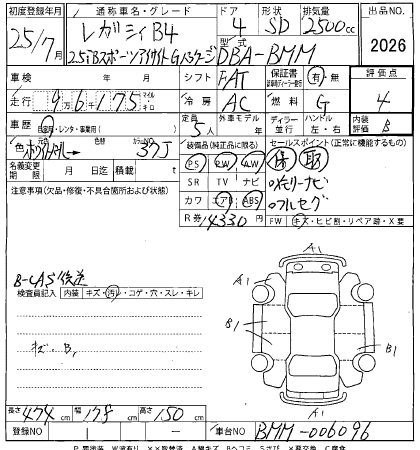 初度登録年月 通称車名・グレード ドア 形状 排気量 出品NO.
25/7月 レガシィB4 4 SD 2500cc 2026
2.5iBスポーツアイサイトGパッケージ 型式 DBA-BMM
車検 年 月 シフト FAT 保証書 有・無 評価点
走行 96175 マイル キロ 冷房 AC 燃料 G 4
車歴 自家用・レンタ・事業用( ) 定員 5人 外車モデル 年 ディーラー 並行 ハンドル 左・右 内装評価 B
色 ホワイトパール 色替 カラーNO. 37J 装備品(純正品に限る) セールスポイント(正常に機能するもの)
名義変更期限 月 日迄 積載 t PS PW AW 保 取
注意事項(欠品・修復・不具合箇所および状態) SR TV ナビ ○メモリーナビ
カワ エアB ABS ○フルセグ
R券 4330円 FW キズ・ヒビ割・リペア跡・X要
B-CAS後送
検査員記入 内装 キズ・汚レ・コゲ・穴・スレ・キレ
キズ・B1
A1
A1
B1
B1
A1
A1
長さ 474cm 幅 178cm 高さ 150cm
登録NO 車台NO BMM-006096